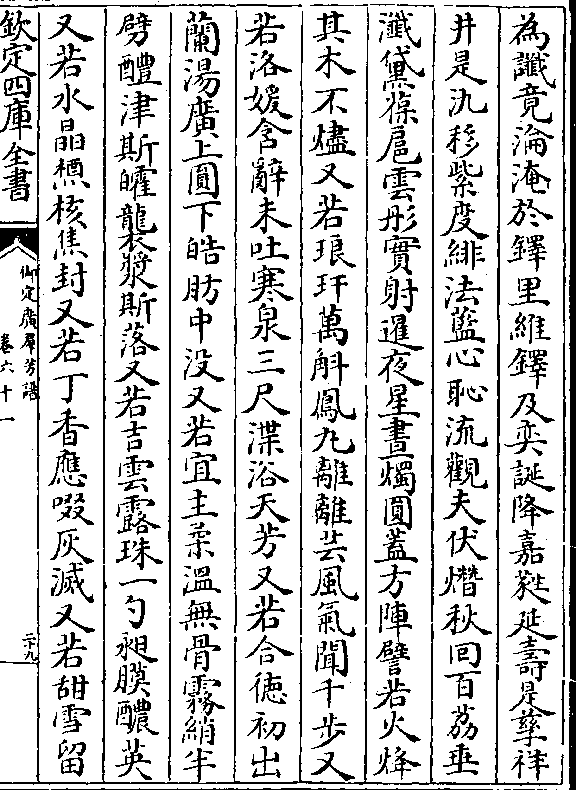 為讖竟淪淹於鐸里維鐸及奕誕降嘉蕤延壽是孳祥
井是氿移紫度緋法藍心恥流觀夫伏熸秋回百荔垂
瀐黛葆扈雲彤實射暹夜星晝燭圓蓋方陣譬若火烽
其木不燼又若琅玕萬斛鳳丸離離芸風氣聞千步又
若洛媛含辭未吐寒泉三尺渫浴天芳又若合德初出
蘭湯廣上圓下皓肪中沒又若宜主柔溫無骨霧綃半
劈醴津斯皬龍衣漿斯落又若吉雲露珠一勺昶膜醲英
又若水晶㯱核焦封又若丁香應啜灰滅又若甜雪留
欽定四庫全書
御定廣羣芳譜
卷六十一
二十九